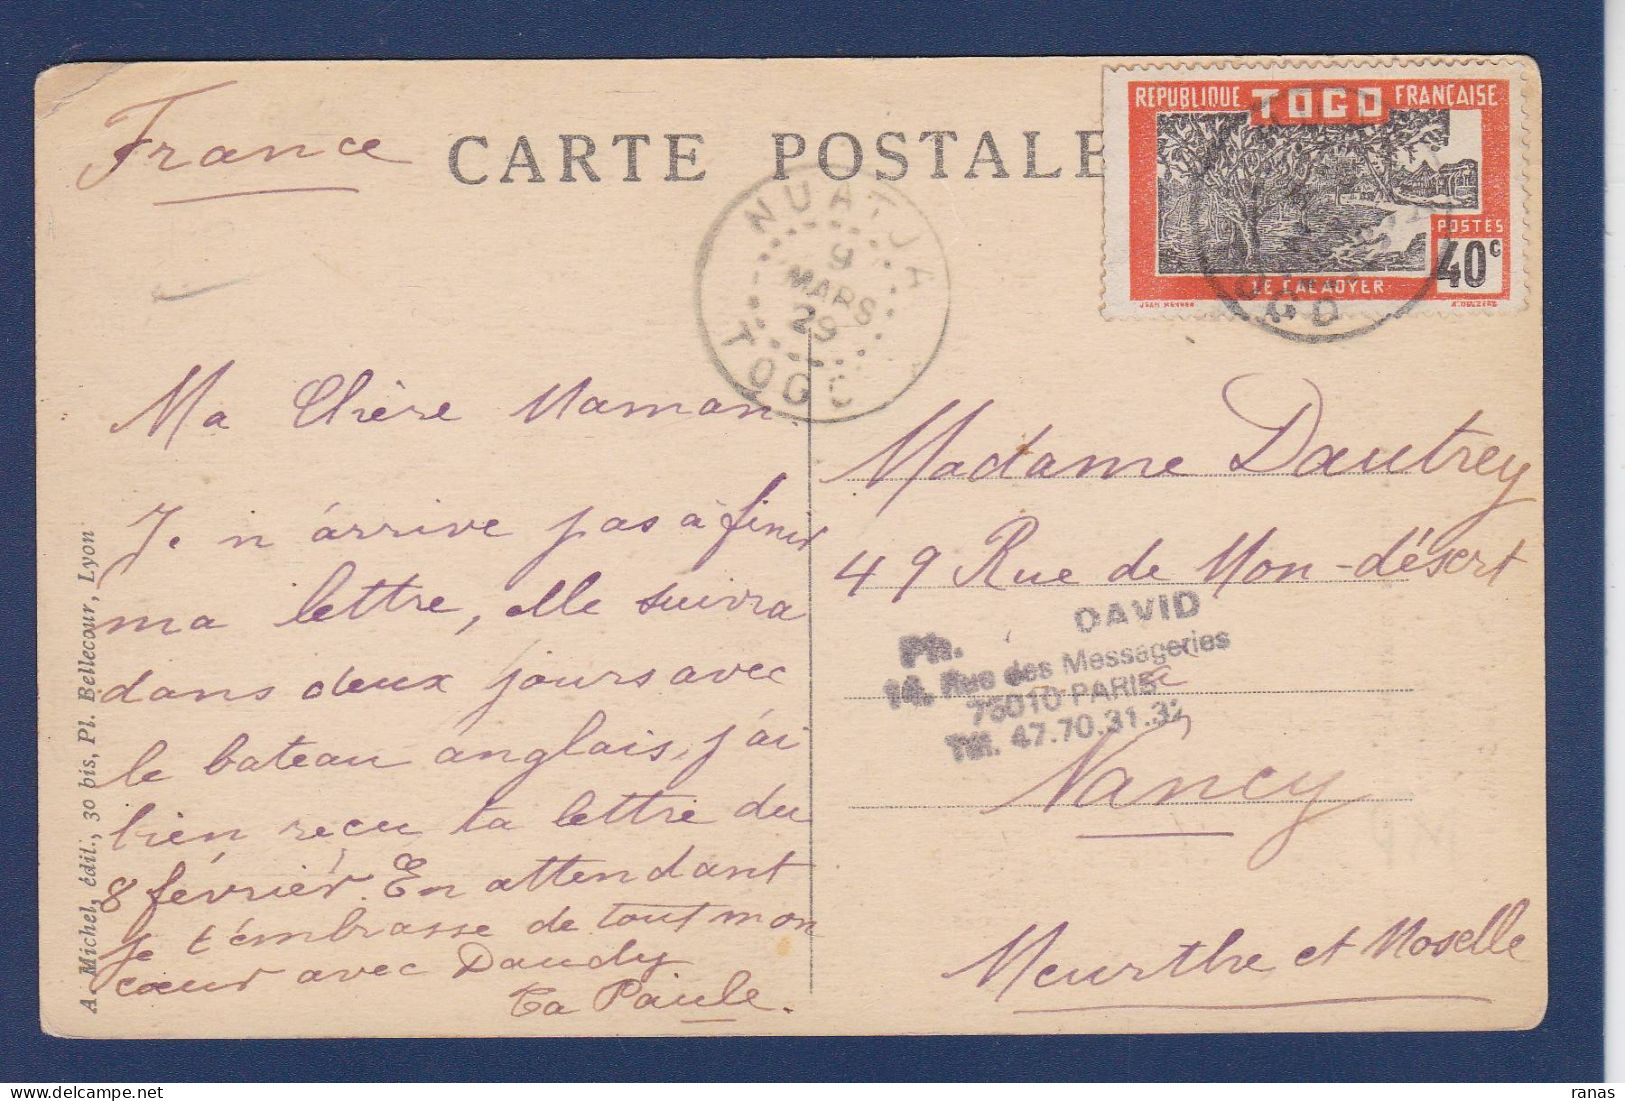 France
CARTE POSTALE
REPUBLIQUE TOGO FRANÇAISE
POSTES
40c
LE CACAOYER
NUATJA
9
MARS
29
TOGO
TOGO
Ma Chère Maman
Je n'arrive pas à finir
ma lettre, elle suivra
dans deux jours avec
le bateau anglais, j'ai
bien reçu ta lettre du
8 février. En attendant
je t'embrasse de tout mon
cœur avec Daudy
Ta Paule.
Madame Dautrey
49 Rue de Mon-désert
à
Nancy
Meurthe et Moselle
Ph. DAVID
14, Rue des Messageries
75010 PARIS
Tél. 47.70.31.32
A. Michel, édit., 30 bis, Pl. Bellecour, Lyon
ranas